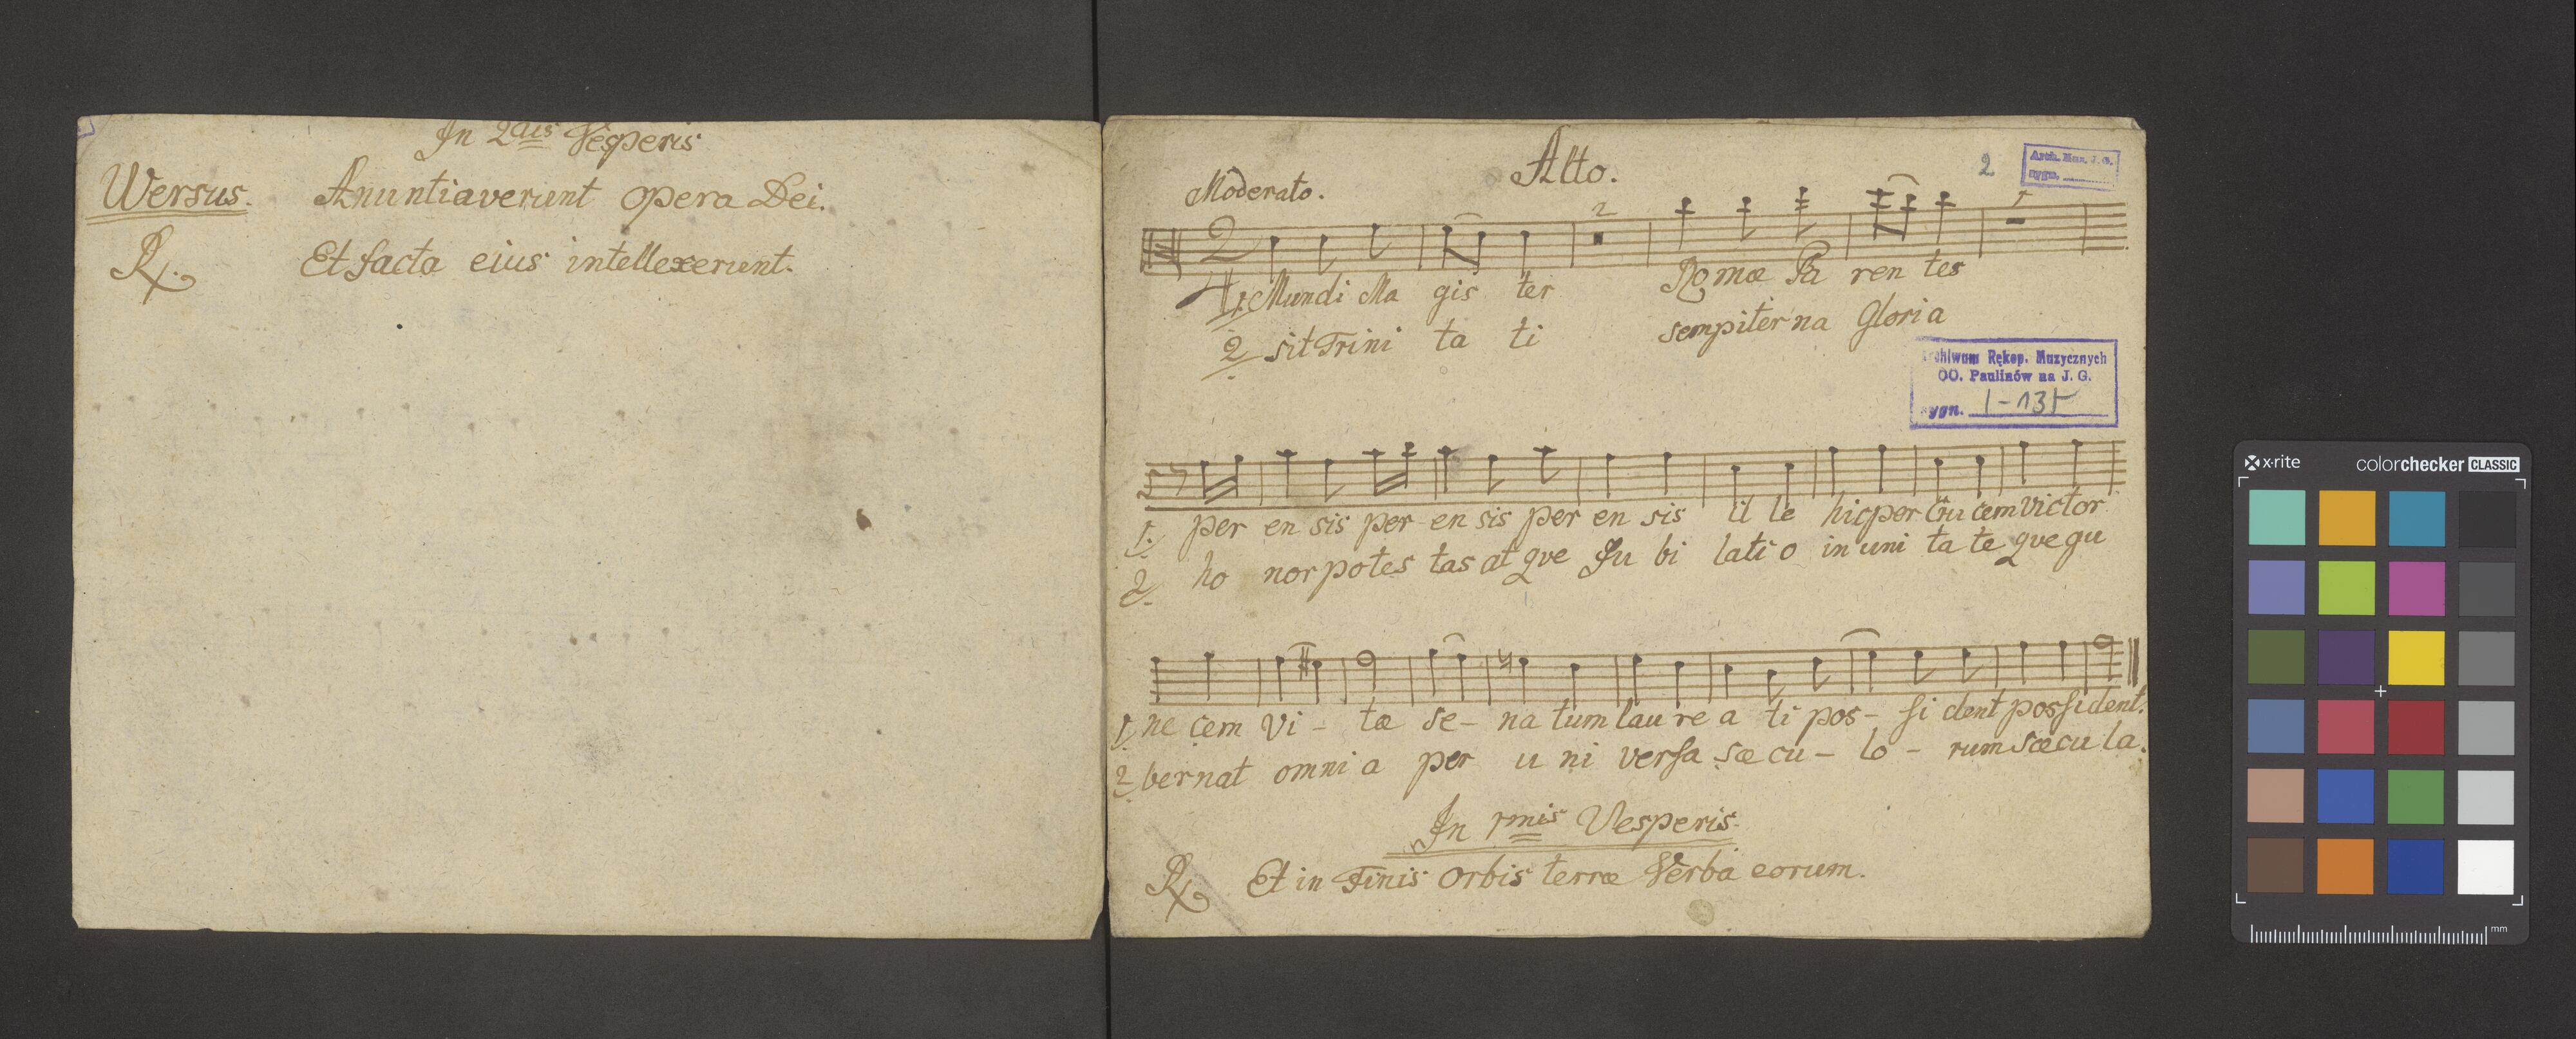 In 2dis Vesperis
Wersus. Anuntiaverunt opera Dei.
℟. Et facta eius intellexerunt.
Alto.
Moderato.
2
Arch. Muz. J. G.
sygn.
2
1
2
4
1. Mundi Ma gis ter Romæ Pa ren tes
2 sit Trini ta ti sempiterna Gloria
Archiwum Rękop. Muzycznych
OO. Paulinów na J. G.
sygn. I-135
1. per en sis per en sis per en sis il le hic per Cru cem victor
2. ho nor potes tas at qve Ju bi latio in uni ta te qve gu
1. ne cem vi - tæ se - na tum lau re a ti pos - si dent possident.
2 bernat omni a per u ni versa sæ cu - lo - rum sæcu la.
In 1mis Vesperis
℟ Et in Finis orbis terræ Verba eorum.
x-rite colorchecker CLASSIC
mm